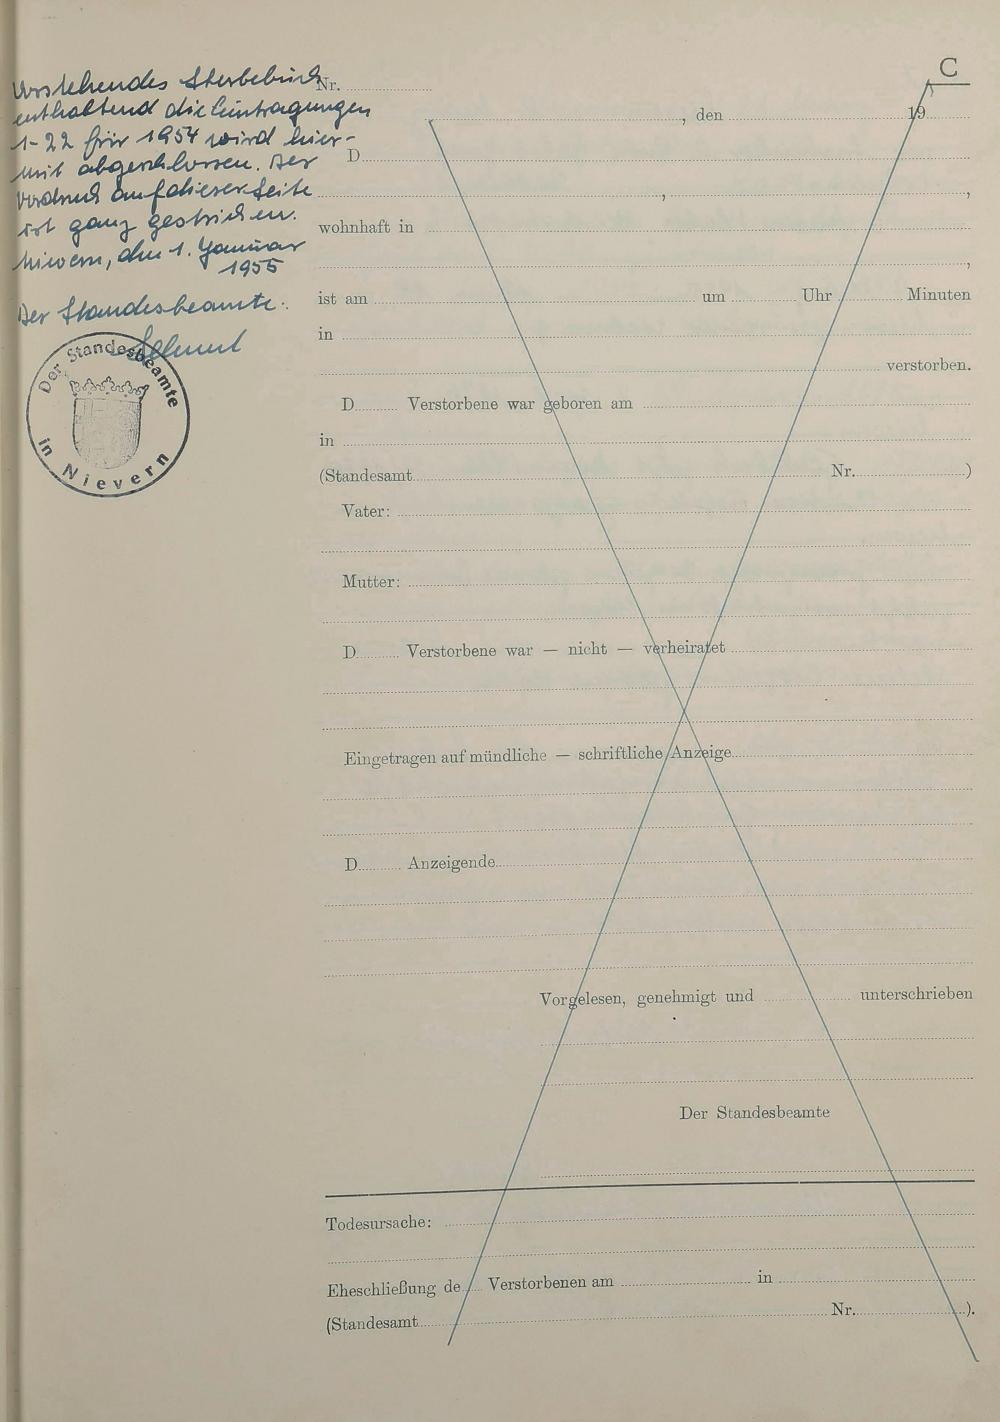 C
Vorstehendes Sterbebuch
enthaltend die Eintragungen
1-22 für 1954 wird hier-
mit abgeschlossen. Der
Vordruck auf dieser Seite
ist ganz gestrichen.
Nievern, den 1. Januar
1955
Der Standesbeamte:
Der Standesbeamte
in Nievern
Nr.
, den 19
D
,
,
wohnhaft in
,
ist am um Uhr Minuten
in
verstorben.
D Verstorbene war geboren am
in
(Standesamt Nr. )
Vater:
Mutter:
D Verstorbene war — nicht — verheiratet
Eingetragen auf mündliche — schriftliche Anzeige
D Anzeigende
Vorgelesen, genehmigt und unterschrieben
Der Standesbeamte
Todesursache:
Eheschließung de Verstorbenen am in
(Standesamt Nr. ).